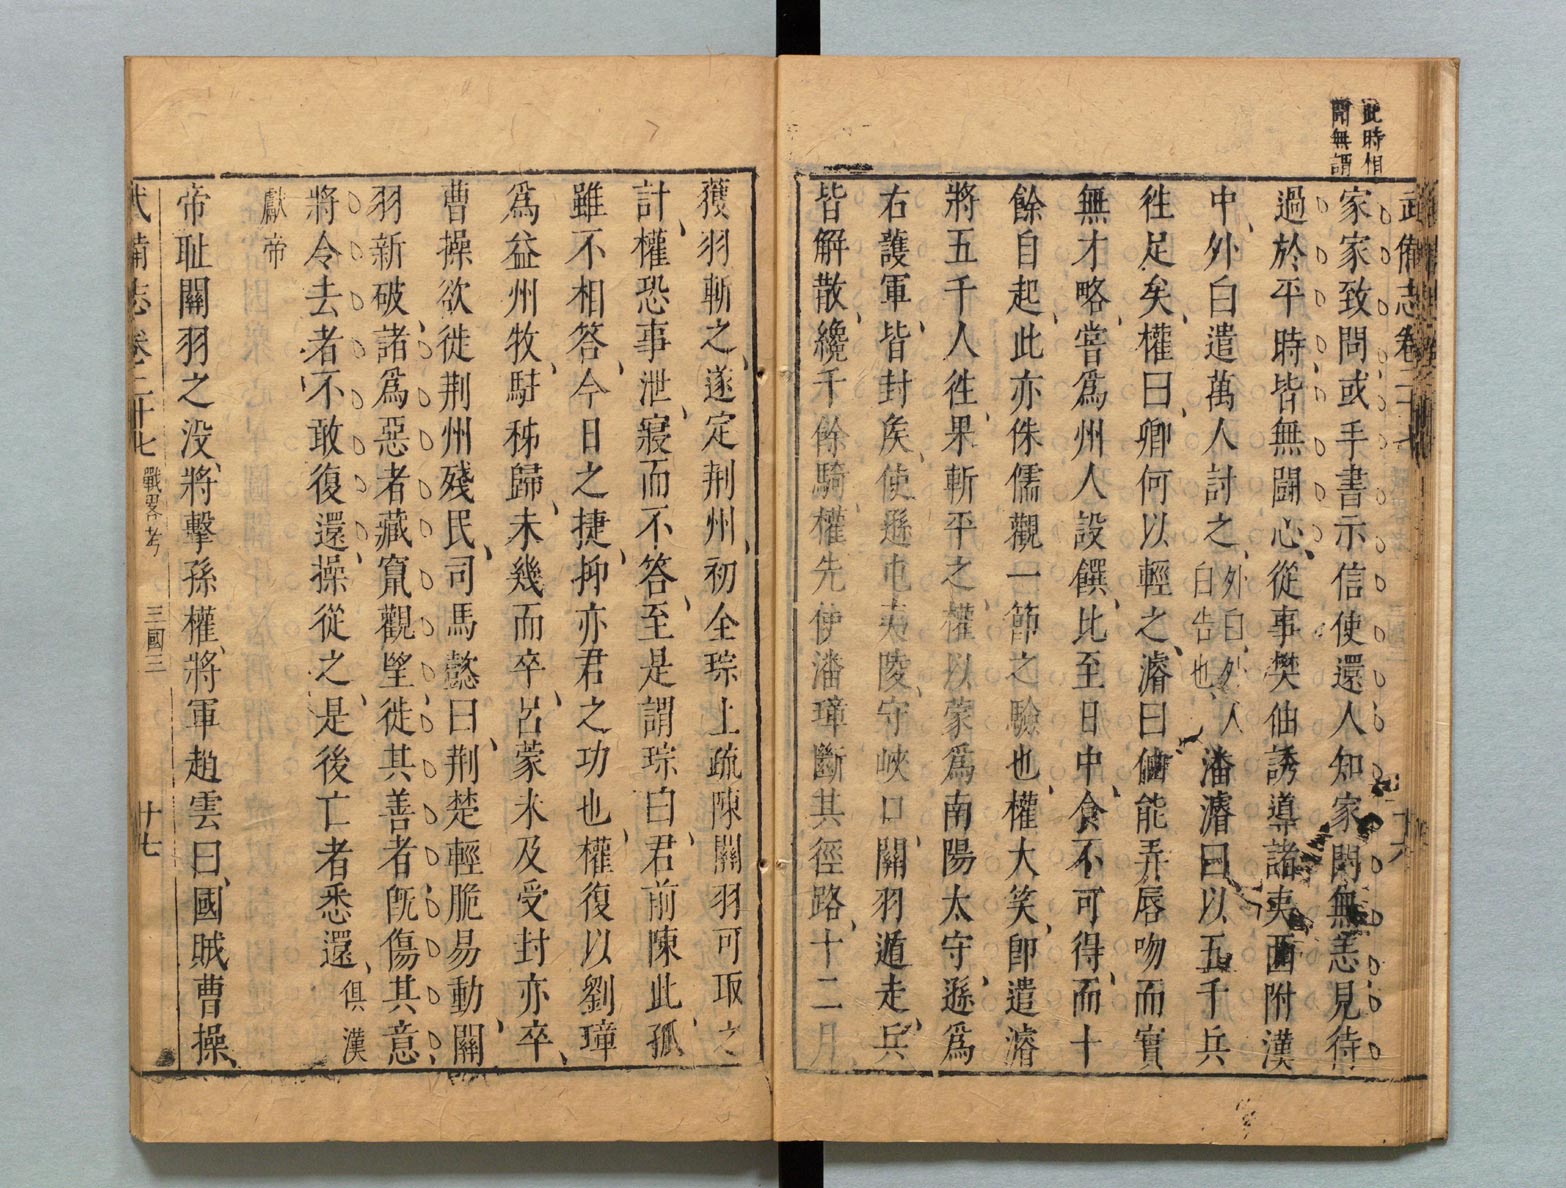 此時相
聞無謂
武備志卷二十七
家家致問或手書示信使還人知家門無恙見待
過於平時皆無鬪心從事樊伷誘導諸夷西附漢
中外白遣萬人討之外白外人白告也潘濬曰以五千兵
往足矣權曰卿何以輕之濬曰伷能弄唇吻而實
無才略嘗爲州人設饌比至日中食不可得而十
餘自起此亦侏儒觀一節之驗也權大笑卽遣濬
將五千人往果斬平之權以蒙爲南陽太守遜爲
右護軍皆封矦使遜屯夷陵守峽口關羽遁走兵
皆解散纔千餘騎權先使潘璋斷其徑路十二月
獲羽斬之遂定荆州初全琮上疏陳關羽可取之
計權恐事泄寢而不答至是謂琮曰君前陳此孤
雖不相答今日之捷抑亦君之功也權復以劉璋
爲益州牧駐秭歸未幾而卒呂蒙未及受封亦卒
曹操欲徙荆州殘民司馬懿曰荆楚輕脆易動關
羽新破諸爲惡者藏竄觀望徙其善者旣傷其意
將令去者不敢復還操從之是後亡者悉還俱漢
獻帝
帝耻關羽之没將擊孫權將軍趙雲曰國賊曹操
武備志卷二十七 戰畧考 三國三 十七